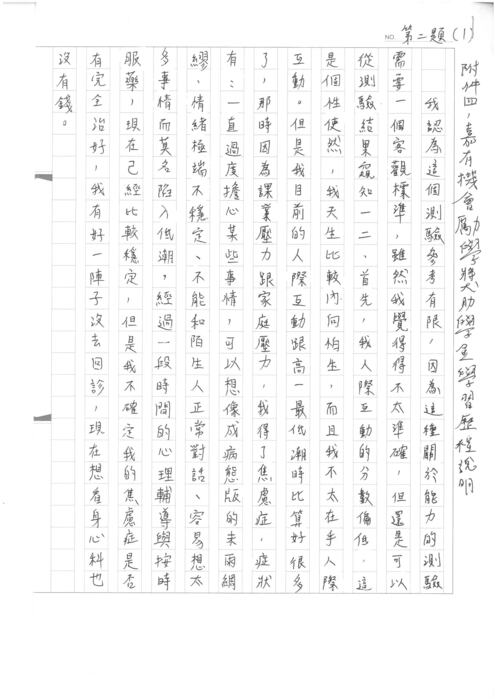 NO. 第二題(1)
附件四，嘉有機會勵學獎助學金學習歷程說明
我認為這個測驗參考有限，因為這種關於能力的測驗
需要一個客觀標準，雖然我覺得得不太準確，但還是可以
從測驗結果窺知一二、首先，我人際互動的分數偏低，這
是個性使然，我天生比較內向怕生，而且我不太在乎人際
互動。但是我目前的人際互動跟高一最低潮時比算好很多
了，那時因為課業壓力跟家庭壓力，我得了焦慮症，症狀
有：一直過度擔心某些事情，可以想像成病態版的未雨綢
繆、情緒極端不穩定、不能和陌生人正常對話、容易想太
多事情而莫名陷入低潮，經過一段時間的心理輔導與按時
服藥，現在已經比較穩定，但是我不確定我的焦慮症是否
有完全治好，我有好一陣子沒去回診，現在想看身心科也
沒有錢。